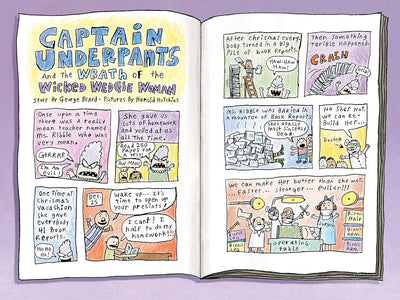 CAPTAIN
UNDERPANTS
And the WRATH of the
WICKED WEDGIE WOMAN
Story By George Beard - Pictures By Harold Hutchins
Once upon a time
there was A really
mean teacher named
ms. Ribble who was
very mean.
GRRRRR
I'm so
evil!
She gave us
lots of homework
and yelled at us
all the Time.
Read 250
PAGES for
a test
Aw, MAN!
One Time at
Chrismas
Vacashion
she gave
everybody
41 Book
Reports.
Ho Ho
Ho!
DEC.
25
Wake up... It's
time to open up
your presints!
I cant! I
half to do my
homework!!!
After chrismas every
body turned in a Big
Pile of book Reports
HAW-HAW
HAW!
Then something
terible Happened.
CRASH
Ms. Ribble was Baried in
a mounten of Book Reports
She's really
most sinserly
Dead
No Shes Not.
we can Re-
Build Her...
Docters
We can make Her better than she was
...Faster... stronger... eviler!!!
operating
table
Bionic
Hair
Bionic
Arm